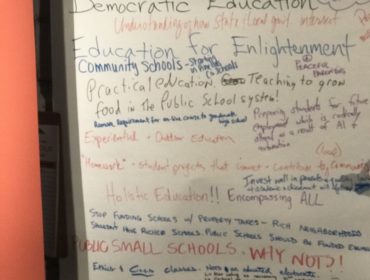 Democratic Education
Understanding of how State + Local govt. interact
Education for Enlightenment
Community Schools - starting
Schools
PEACEFUL
PARENTING
Practical education Teaching to grow
food in the Public School system!
Remove requirement for on-line course to graduate
high school
Experiential + Outdoor Education
Preparing students for future
employment which is radically
altered as a result of AI +
automation
"Homework" - student projects that connect + contribute to Community
(local)
Invest in parents
Holistic Education!! Encompassing ALL
STOP FUNDING SCHOOLS W/ PROPERTY TAXES - RICH NEIGHBORHOODS
SHOULDN'T HAVE RICHER SCHOOLS PUBLIC SCHOOLS SHOULD BE FUNDED
PUBLIC SMALL SCHOOLS. WHY NOT?!
Ethics & Civics classes. Need an educated electorate